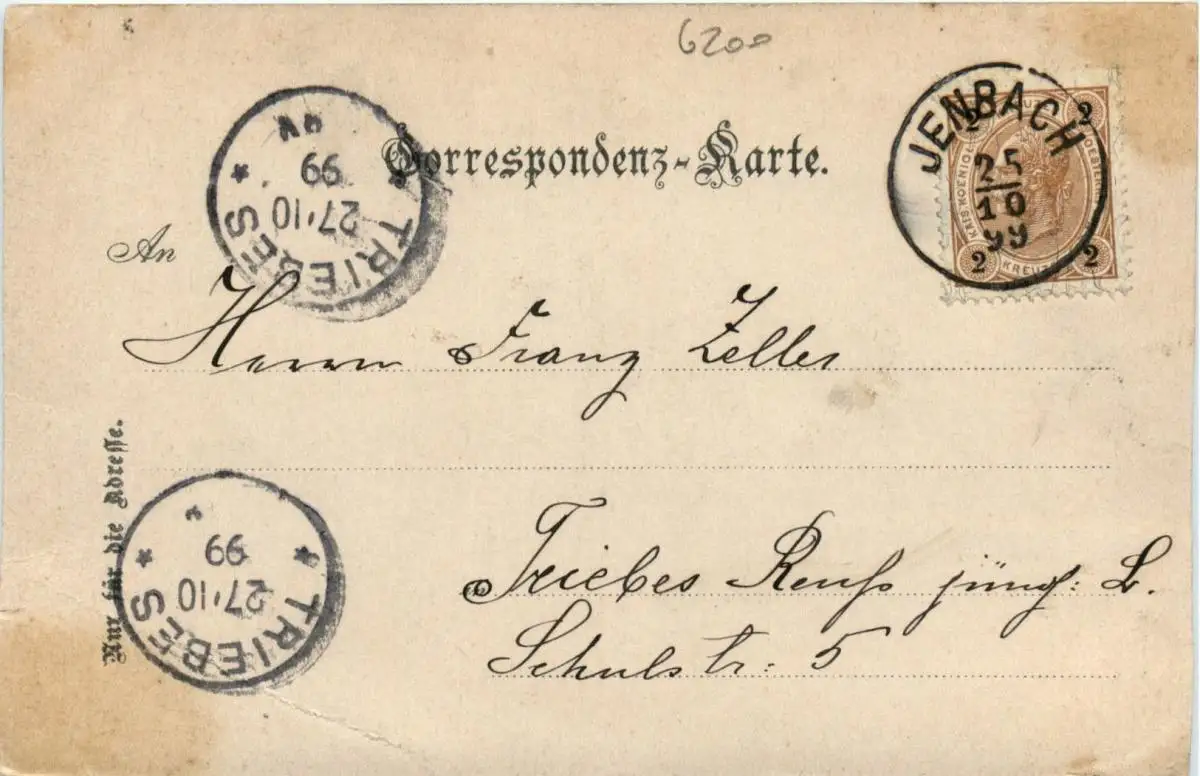 6200
Correspondenz-Karte.
JENBACH
25
10
99
2 2
KAIS KOENIGL
2 KREUZ 2
TRIEBES
27.10
99
An
Herrn Franz Zeller
Nur für die Adresse.
TRIEBES
27.10
99
Triebes Reuß jüng: L.
Schulstr: 5